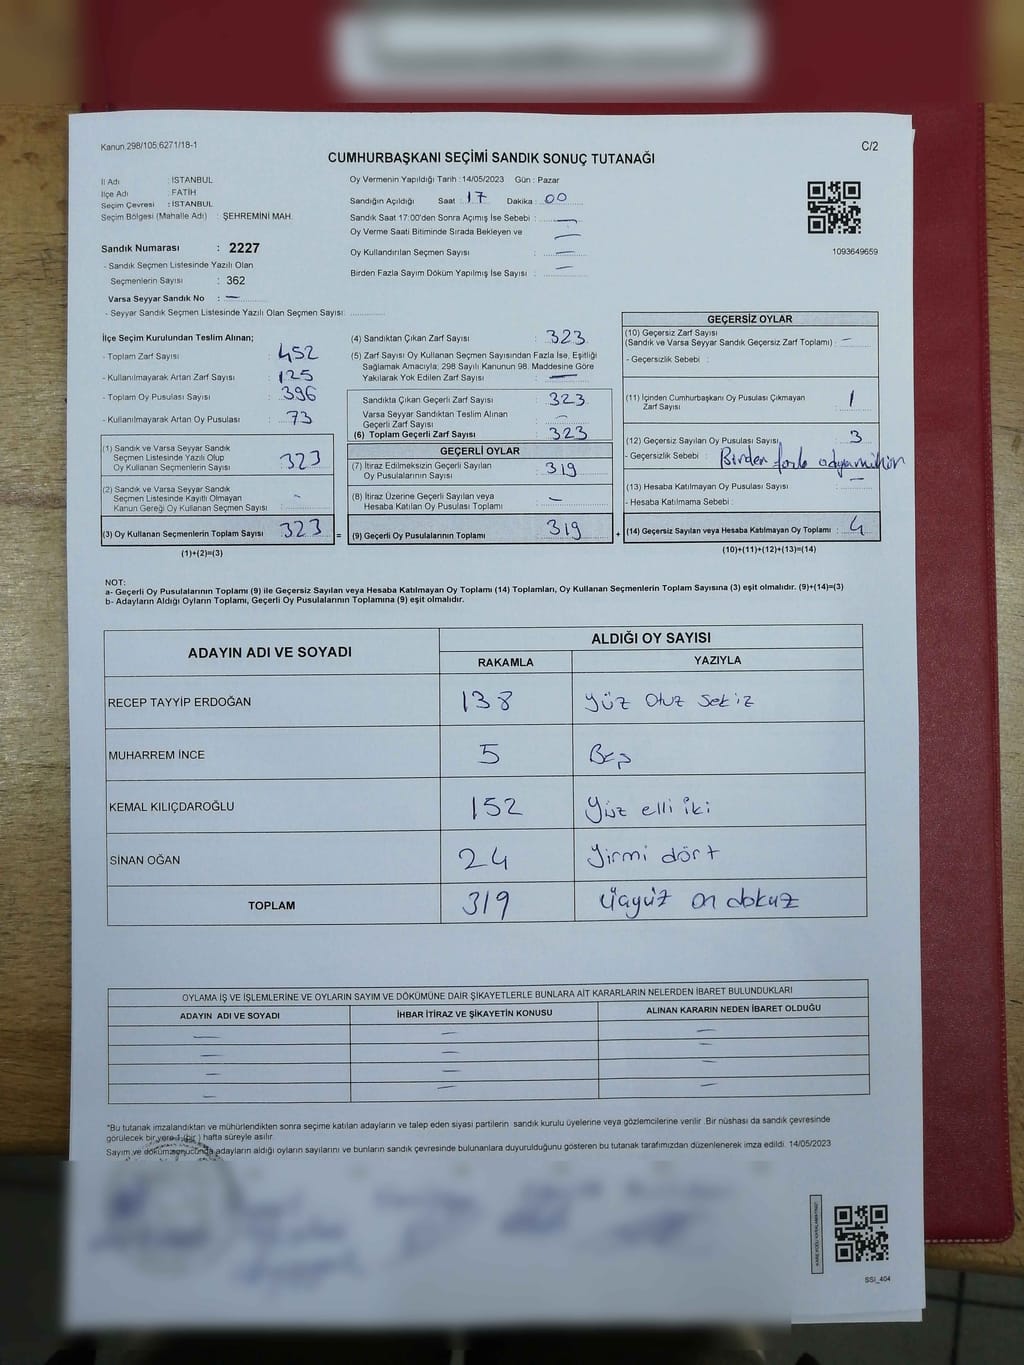 Kanun.298/105,6271/18-1
C/2
CUMHURBAŞKANI SEÇİMİ SANDIK SONUÇ TUTANAĞI
İl Adı : İSTANBUL
İlçe Adı : FATİH
Seçim Çevresi : İSTANBUL
Seçim Bölgesi (Mahalle Adı) : ŞEHREMİNİ MAH.
Sandık Numarası : 2227
- Sandık Seçmen Listesinde Yazılı Olan
Seçmenlerin Sayısı : 362
Varsa Seyyar Sandık No : —
- Seyyar Sandık Seçmen Listesinde Yazılı Olan Seçmen Sayısı:
Oy Vermenin Yapıldığı Tarih : 14/05/2023 Gün : Pazar
Sandığın Açıldığı Saat : 17 Dakika : 00
Sandık Saat 17:00'den Sonra Açımış İse Sebebi : —
Oy Verme Saati Bitiminde Sırada Bekleyen ve —
Oy Kullandırılan Seçmen Sayısı : —
Birden Fazla Sayım Döküm Yapılmış İse Sayısı : —
1093649659
İlçe Seçim Kurulundan Teslim Alınan;
- Toplam Zarf Sayısı : 452
- Kullanılmayarak Artan Zarf Sayısı : 125
- Toplam Oy Pusulası Sayısı : 396
- Kullanılmayarak Artan Oy Pusulası : 73
(1) Sandık ve Varsa Seyyar Sandık
Seçmen Listesinde Yazılı Olup
Oy Kullanan Seçmenlerin Sayısı : 323
(2) Sandık ve Varsa Seyyar Sandık
Seçmen Listesinde Kayıtlı Olmayan
Kanun Gereği Oy Kullanan Seçmen Sayısı : -
(3) Oy Kullanan Seçmenlerin Toplam Sayısı : 323 =
(1)+(2)=(3)
(4) Sandıktan Çıkan Zarf Sayısı : 323
(5) Zarf Sayısı Oy Kullanan Seçmen Sayısından Fazla İse, Eşitliği
Sağlamak Amacıyla; 298 Sayılı Kanunun 98. Maddesine Göre
Yakılarak Yok Edilen Zarf Sayısı : —
Sandıkta Çıkan Geçerli Zarf Sayısı : 323
Varsa Seyyar Sandıktan Teslim Alınan
Geçerli Zarf Sayısı : —
(6) Toplam Geçerli Zarf Sayısı : 323
GEÇERLİ OYLAR
(7) İtiraz Edilmeksizin Geçerli Sayılan
Oy Pusulalarının Sayısı : 319
(8) İtiraz Üzerine Geçerli Sayılan veya
Hesaba Katılan Oy Pusulası Toplamı : —
(9) Geçerli Oy Pusulalarının Toplamı : 319 +
GEÇERSİZ OYLAR
(10) Geçersiz Zarf Sayısı
(Sandık ve Varsa Seyyar Sandık Geçersiz Zarf Toplamı) : —
- Geçersizlik Sebebi :
(11) İçinden Cumhurbaşkanı Oy Pusulası Çıkmayan
Zarf Sayısı : 1
(12) Geçersiz Sayılan Oy Pusulası Sayısı : 3
- Geçersizlik Sebebi : Birden fazla
(13) Hesaba Katılmayan Oy Pusulası Sayısı : —
- Hesaba Katılmama Sebebi :
(14) Geçersiz Sayılan veya Hesaba Katılmayan Oy Toplamı : 4
(10)+(11)+(12)+(13)=(14)
NOT:
a- Geçerli Oy Pusulalarının Toplamı (9) ile Geçersiz Sayılan veya Hesaba Katılmayan Oy Toplamı (14) Toplamları, Oy Kullanan Seçmenlerin Toplam Sayısına (3) eşit olmalıdır. (9)+(14)=(3)
b- Adayların Aldığı Oyların Toplamı, Geçerli Oy Pusulalarının Toplamına (9) eşit olmalıdır.
ADAYIN ADI VE SOYADI ALDIĞI OY SAYISI
RAKAMLA YAZIYLA
RECEP TAYYİP ERDOĞAN 138 Yüz Otuz Sekiz
MUHARREM İNCE 5 Beş
KEMAL KILIÇDAROĞLU 152 Yüz elli iki
SİNAN OĞAN 24 Yirmi dört
TOPLAM 319 Üçyüz on dokuz
OYLAMA İŞ VE İŞLEMLERİNE VE OYLARIN SAYIM VE DÖKÜMÜNE DAİR ŞİKAYETLERLE BUNLARA AİT KARARLARIN NELERDEN İBARET BULUNDUKLARI
ADAYIN ADI VE SOYADI İHBAR İTİRAZ VE ŞİKAYETİN KONUSU ALINAN KARARIN NEDEN İBARET OLDUĞU
— — —
— — —
— — —
— — —
*Bu tutanak imzalandıktan ve mühürlendikten sonra seçime katılan adayların ve talep eden siyasi partilerin sandık kurulu üyelerine veya gözlemcilerine verilir. Bir nüshası da sandık çevresinde
görülecek bir yere 1 (bir ) hafta süreyle asılır.
Sayım ve döküm sonucunda adayların aldığı oyların sayılarını ve bunların sandık çevresinde bulunanlara duyurulduğunu gösteren bu tutanak tarafımızdan düzenlenerek imza edildi. 14/05/2023
SSİ_404